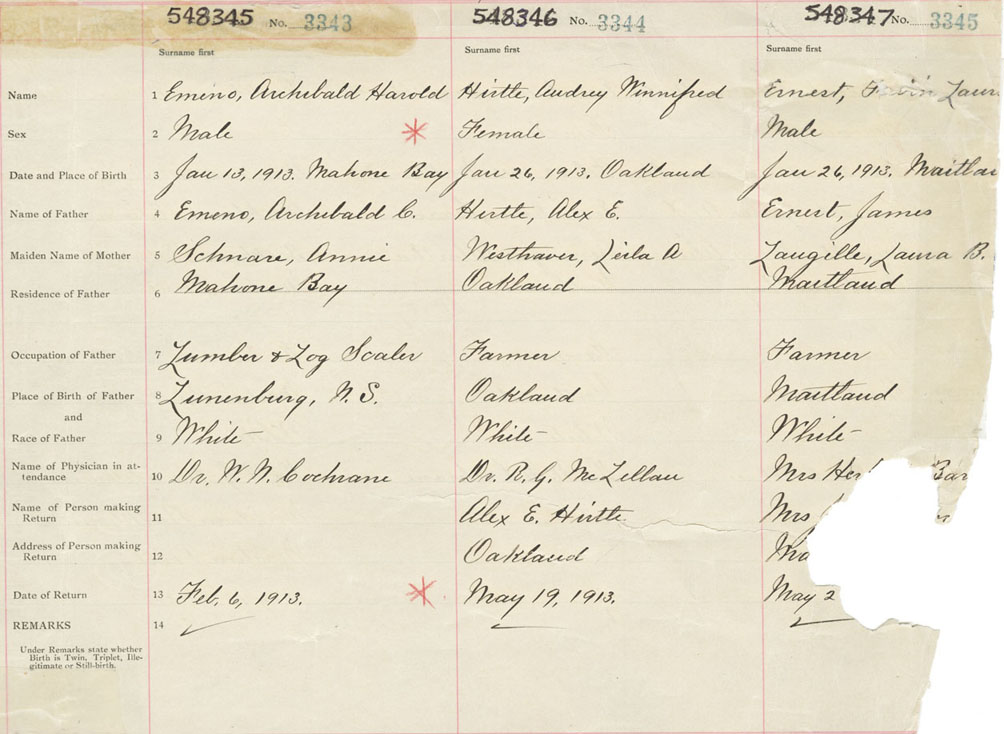 548345 No. 3343 548346 No. 3344 548347 No. 3345
Surname first Surname first Surname first
Name 1 Emeno, Archibald Harold Hirtle, Audrey Winnifred Ernest,
Sex 2 Male Female Male
Date and Place of Birth 3 Jan 13, 1913. Mahone Bay Jan 26, 1913. Oakland Jan 26, 1913.
Name of Father 4 Emeno, Archibald C. Hirtle, Alex E. Ernest, James
Maiden Name of Mother 5 Schnare, Annie Westhaver, Leila A Langille, Laura B.
Residence of Father 6 Mahone Bay Oakland Maitland
Occupation of Father 7 Lumber & Log Scaler Farmer Farmer
Place of Birth of Father 8 Lunenburg, N. S. Oakland Maitland
and
Race of Father 9 White White White
Name of Physician in at-
tendance 10 Dr. W. N. Cochrane Dr. R. G. McLellan Mrs
Name of Person making
Return 11 Alex E. Hirtle Mrs
Address of Person making
Return 12 Oakland
Date of Return 13 Feb. 6, 1913. May 19, 1913. May 2
REMARKS 14
Under Remarks state whether
Birth is Twin, Triplet, Ille-
gitimate or Still-birth.